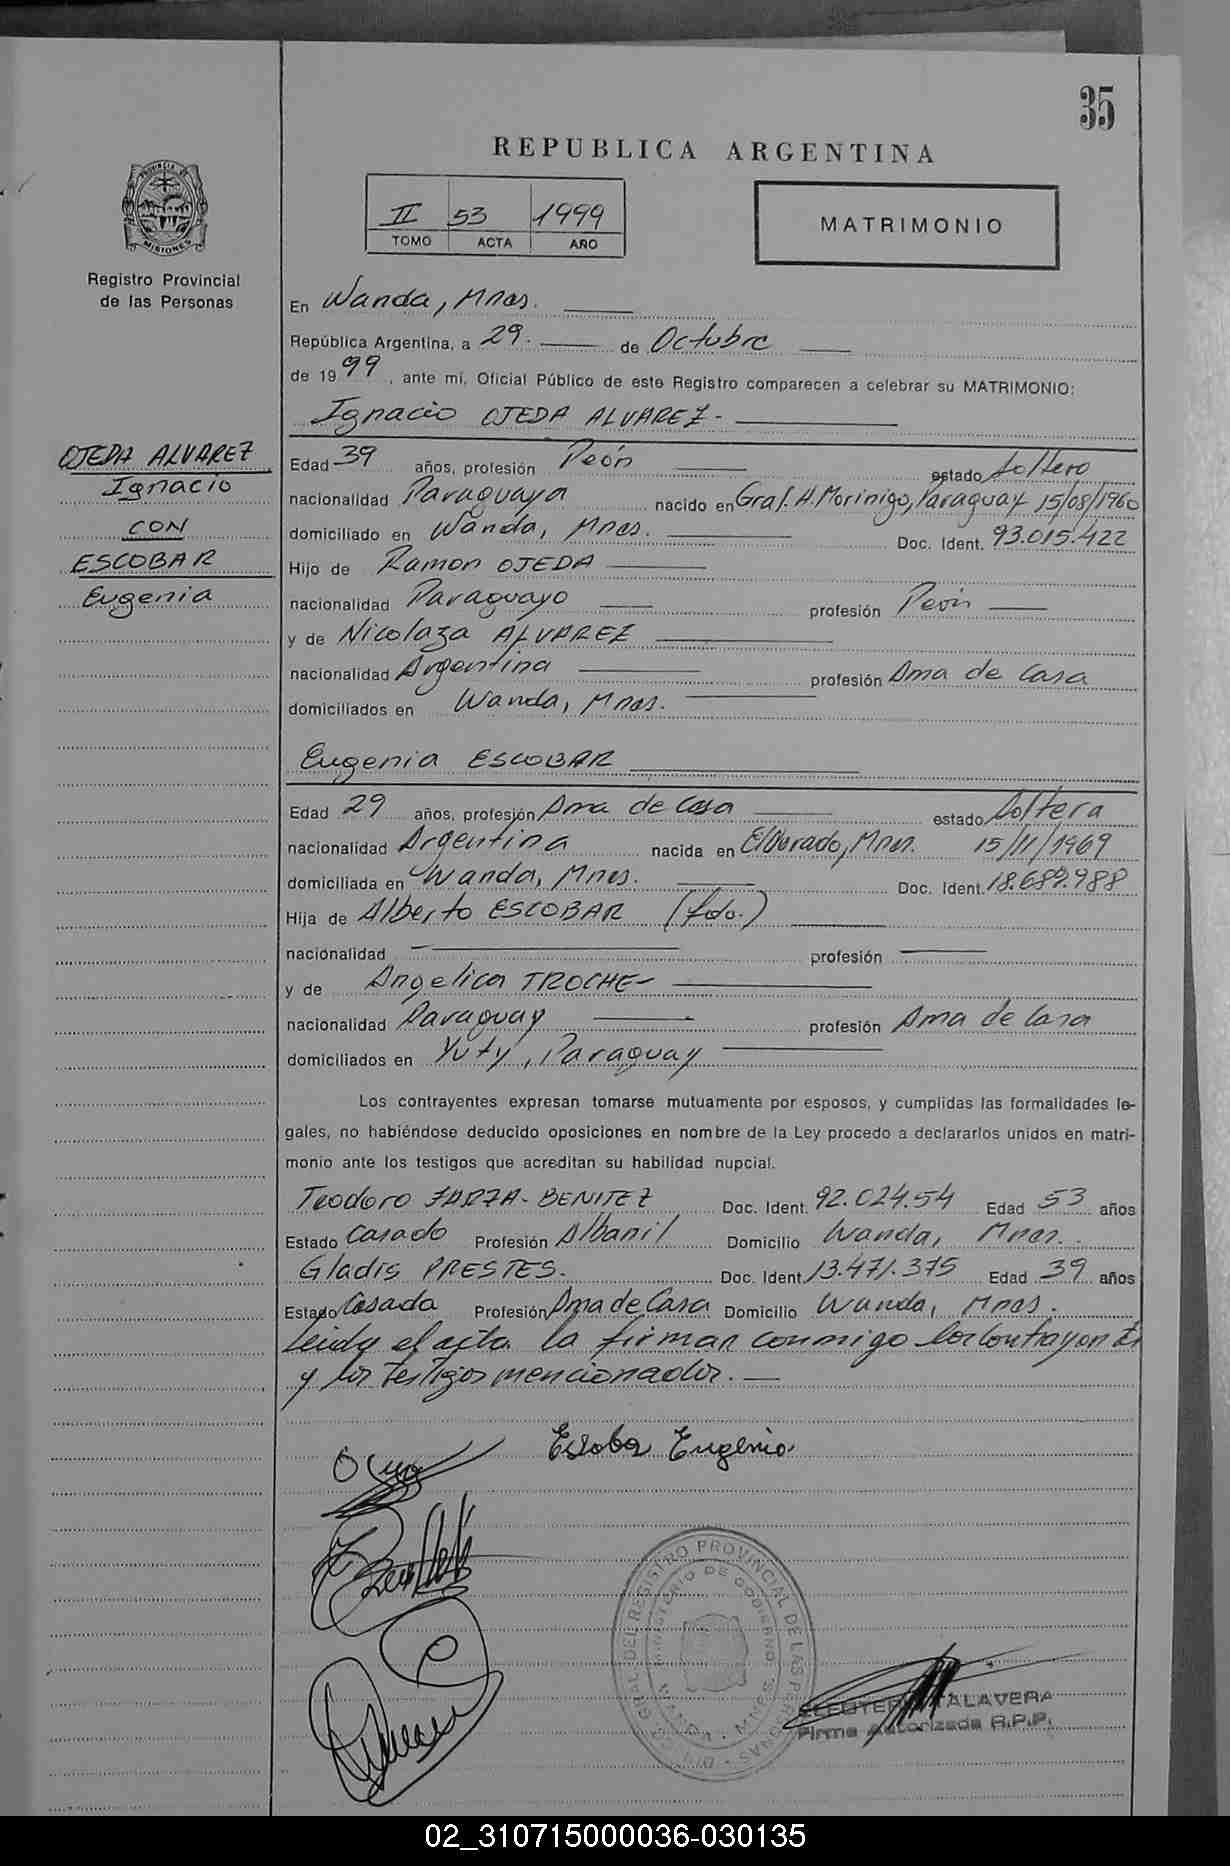 35
REPUBLICA ARGENTINA
II 53 1999
TOMO ACTA AÑO
MATRIMONIO
PROVINCIA DE MISIONES
Registro Provincial
de las Personas
OJEDA ALVAREZ
Ignacio
CON
ESCOBAR
Eugenia
En Wanda, Mnes.
República Argentina, a 29. de Octubre
de 1999, ante mí, Oficial Público de este Registro comparecen a celebrar su MATRIMONIO:
Ignacio OJEDA ALVAREZ-
Edad 39 años, profesión Peón estado Soltero
nacionalidad Paraguaya nacido en Gral. H. Morinigo, Paraguay 15/08/1960
domiciliado en Wanda, Mnes. Doc. Ident. 93.015.422
Hijo de Ramon OJEDA
nacionalidad Paraguayo profesión Peón
y de Nicolaza ALVAREZ
nacionalidad Argentina profesión Ama de Casa
domiciliados en Wanda, Mnes.
Eugenia ESCOBAR
Edad 29 años, profesión Ama de Casa estado Soltera
nacionalidad Argentina nacida en ElDorado, Mnes. 15/11/1969
domiciliada en Wanda, Mnes. Doc. Ident. 18.689.988
Hija de Alberto ESCOBAR (fdo.)
nacionalidad profesión
y de Angelica TROCHE
nacionalidad Paraguay profesión Ama de Casa
domiciliados en Yuty, Paraguay
Los contrayentes expresan tomarse mutuamente por esposos, y cumplidas las formalidades le-
gales, no habiéndose deducido oposiciones en nombre de la Ley procedo a declararlos unidos en matri-
monio ante los testigos que acreditan su habilidad nupcial.
Teodoro ZARZA-BENITEZ Doc. Ident. 92.024.54 Edad 53 años
Estado Casado Profesión Albanil Domicilio Wanda, Mnes.
Gladis PRESTES. Doc. Ident. 13.471.375 Edad 39 años
Estado Casada Profesión Ama de Casa Domicilio Wanda, Mnes.
Leida el acta la firman conmigo los Contrayentes
y los testigos mencionados.
Escobar Eugenia
DEL REGISTRO PROVINCIAL DE LAS PERSONAS
MINISTERIO DE GOBIERNO
WANDA
TALAVERA
Firma Autorizada R.P.P.
02_310715000036-030135